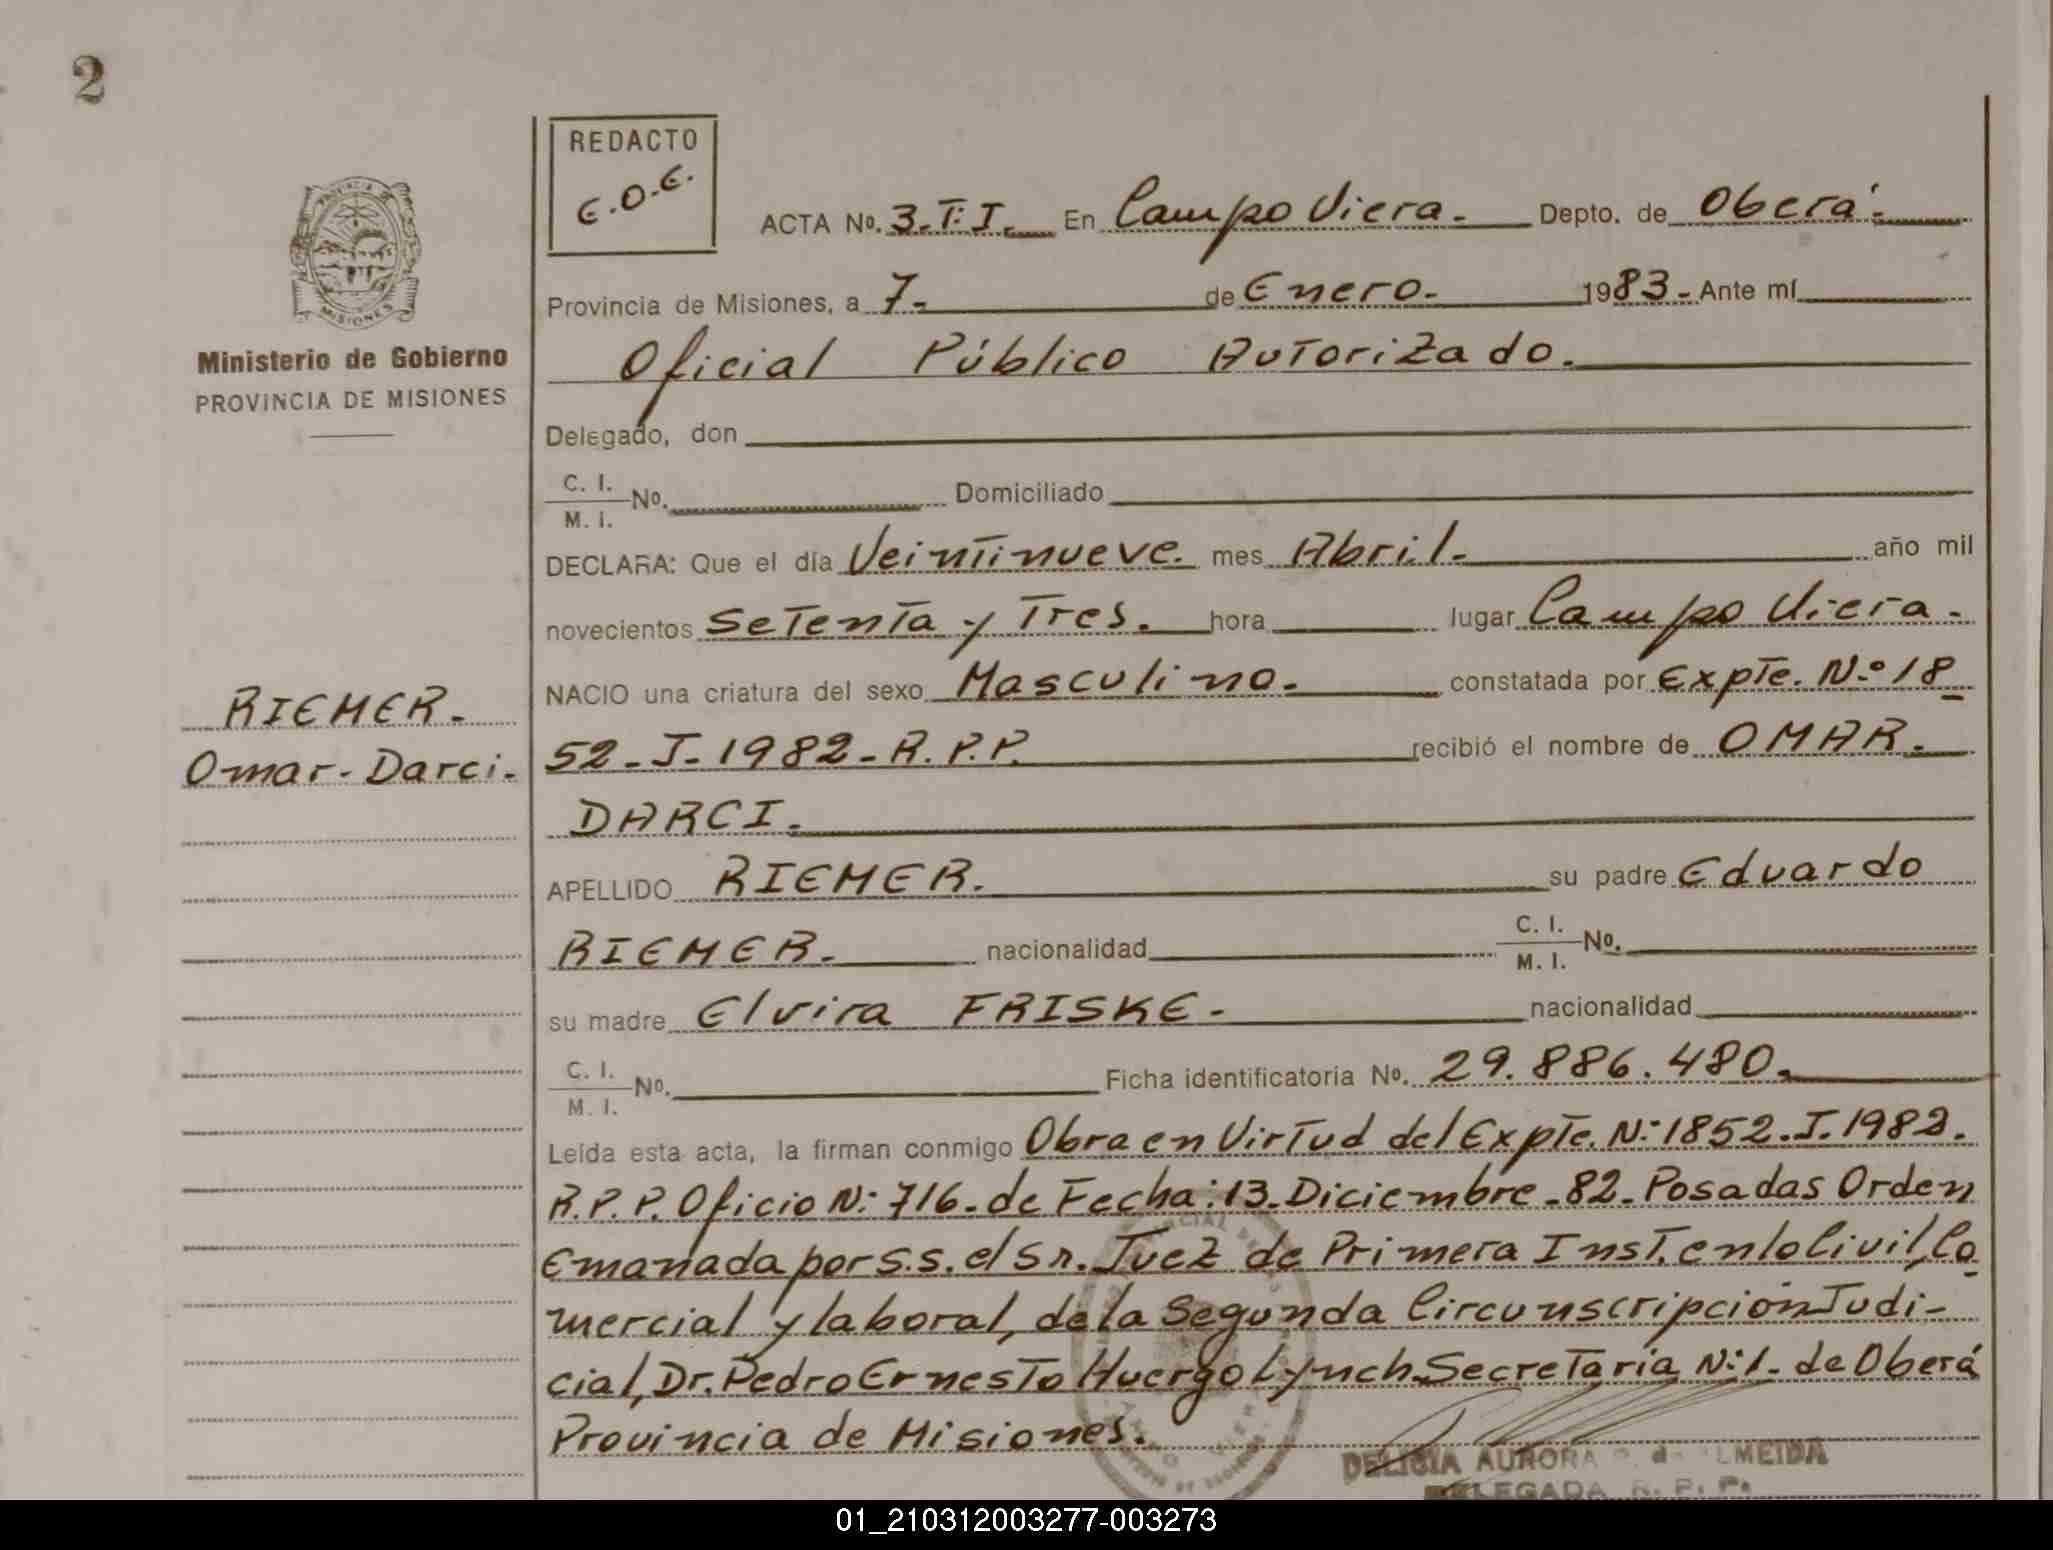 2
REDACTO
E.O.E.
ACTA No. 3.T:I. En Campo Viera. Depto. de Oberá.
PROVINCIA DE
MISIONES
Provincia de Misiones, a 7. de Enero. 1983. Ante mí
Ministerio de Gobierno
PROVINCIA DE MISIONES
Oficial Público Autorizado.
Delegado, don
C. I.
M. I. No. Domiciliado
DECLARA: Que el día Veintinueve. mes Abril. año mil
novecientos Setenta y Tres. hora lugar Campo Viera.
NACIO una criatura del sexo Masculino. constatada por Expte. N.º 18
RIEMER.
Omar-Darci.
52-J-1982-R.P.P. recibió el nombre de OMAR.
DARCI.
APELLIDO RIEMER. su padre Eduardo
RIEMER. nacionalidad C. I.
M. I. No.
su madre Elvira FRISKE. nacionalidad
C. I.
M. I. No. Ficha identificatoria No. 29.886.480.
Leída esta acta, la firman conmigo Obra en Virtud del Expte. N:1852.J.1982.
R.P.P. Oficio N: 716. de Fecha: 13. Diciembre. 82. Posadas Orden
Emanada por S.S. el Sr. Juez de Primera Inst. en lo Civil, Co
mercial y laboral, de la Segunda Circunscripción Judi-
cial, Dr. Pedro Ernesto Huergo Lynch. Secretaría N:1. de Oberá
Provincia de Misiones.
DELICIA AURORA
DELEGADA R. P. P.
01_210312003277-003273